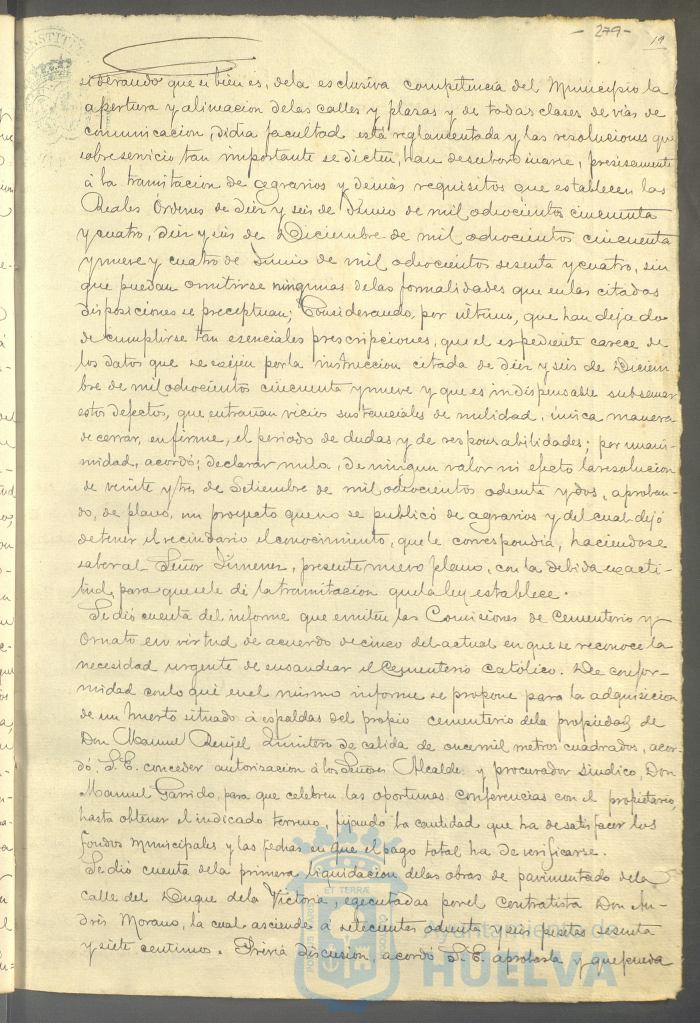 - 279 -
19
siderando que si bien es, dela esclusiva competencia del Municipio la
apertura y alineacion delas calles y plazas y de todas clases de vias de
comunicacion, dicha facultad está reglamentada y las resoluciones que
sobre servicio tan importante se dicten, han desubordinarse, presisamente
á la tramitacion de agrarios y demás requisitos que establecen las
Reales Ordenes de diez y seis de Junio de mil ochocientos cincuenta
y cuatro, diez y seis de Diciembre de mil ochocientos cincuenta
y nueve y cuatro de Junio de mil ochocientos sesenta y cuatro, sin
que puedan omitirse ningunas delas formalidades que enlas citadas
disposiciones se preceptuan; Considerando, por último, que han dejado
de cumplirse tan esenciales prescripciones, que el espediente carece de
los datos que se exijen por la instruccion citada de diez y seis de Diciem
bre de mil ochocientos cincuenta y nueve y que es indispensable subsanar
estos defectos, que entrañan vicios sustanciales de nulidad, única manera
de cerrar, en firme, el periodo de dudas y de responsabilidades; por unani-
midad, acordó; declarar nula, de ningun valor ni efecto la resolucion
de veinte y tres de Setiembre de mil ochocientos ochenta y dos, aproban-
do, de plano, un proyecto que no se publicó de agrarios y del cual dejó
de tener el vecindario el conocimiento, que le correspondia, haciendose
saber al Señor Jimenez, presente nuevo plano, con la debida exacti-
tud, para que sele dé la tramitacion que la ley establece.
Se dió cuenta del informe que emiten las Comisiones de Cementerio y
Ornato en virtud de acuerdo de cinco del actual en que se reconoce la
necesidad urgente de ensanchar el Cementerio católico. De confor-
midad con lo que en el mismo informe se propone para la adquisicion
de un huerto situado á espaldas del propio cementerio dela propiedad de
Don Manuel Quintero de cabida de once mil metros cuadrados, acor-
dó, S. E. conceder autorizacion á los Señores Alcalde y procurador síndico, Don
Manuel Garrido, para que celebren las oportunas conferencias con el propietario,
hasta obtener el indicado terreno, fijando la cantidad que ha de satisfacer los
fondos municipales y las fechas en que el pago total ha de verificarse.
Se dió cuenta dela primera liquidacion delas obras de pavimentado dela
calle del Duque dela Victoria, egecutadas por el contratista Don An-
drés Morano, la cual asciende á setecientas ochenta y seis pesetas sesenta
y siete centimos. Prévia discusion, acordó S. E. aprobarla y que pueda
ET TERRÆ
Ayuntamiento de
HUELVA